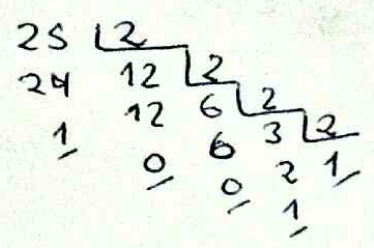 25 2
24 12 2
1 12 6 2
0 6 3 2
0 2 1
1